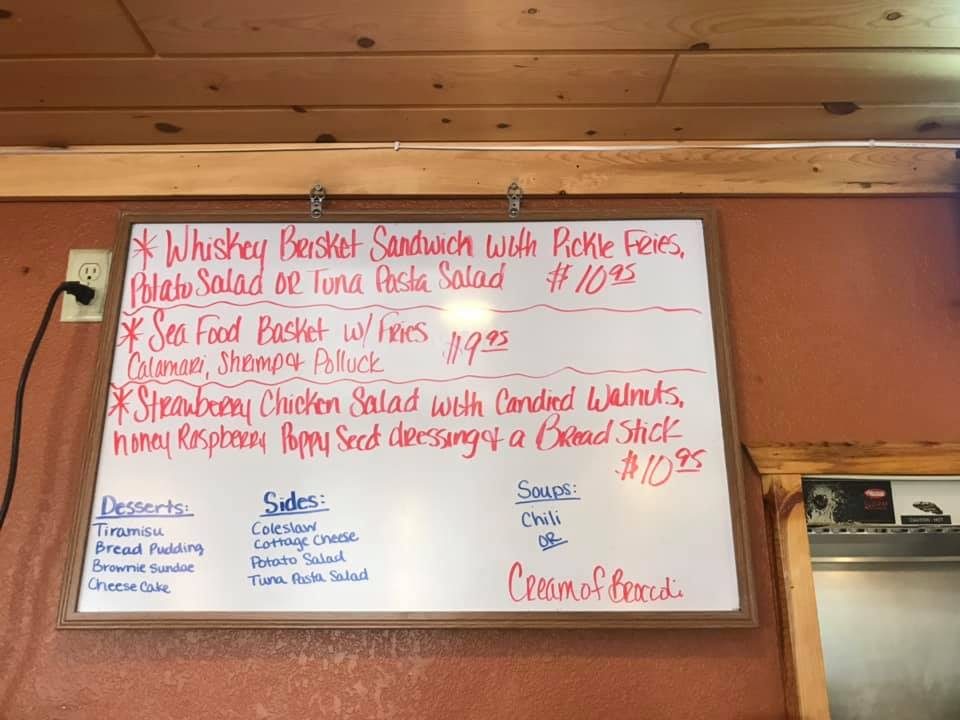 * Whiskey Brisket Sandwich with Pickle Fries,
Potato Salad OR Tuna Pasta Salad $10.95
* Sea Food Basket w/ Fries $9.95
Calamari, Shrimp & Polluck
* Strawberry Chicken Salad with Candied Walnuts,
honey Raspberry Poppy Seed dressing & a Bread Stick
$10.95
Desserts:
Tiramisu
Bread Pudding
Brownie Sundae
Cheese Cake
Sides:
Coleslaw
Cottage Cheese
Potato Salad
Tuna Pasta Salad
Soups:
Chili
OR
Cream of Broccoli